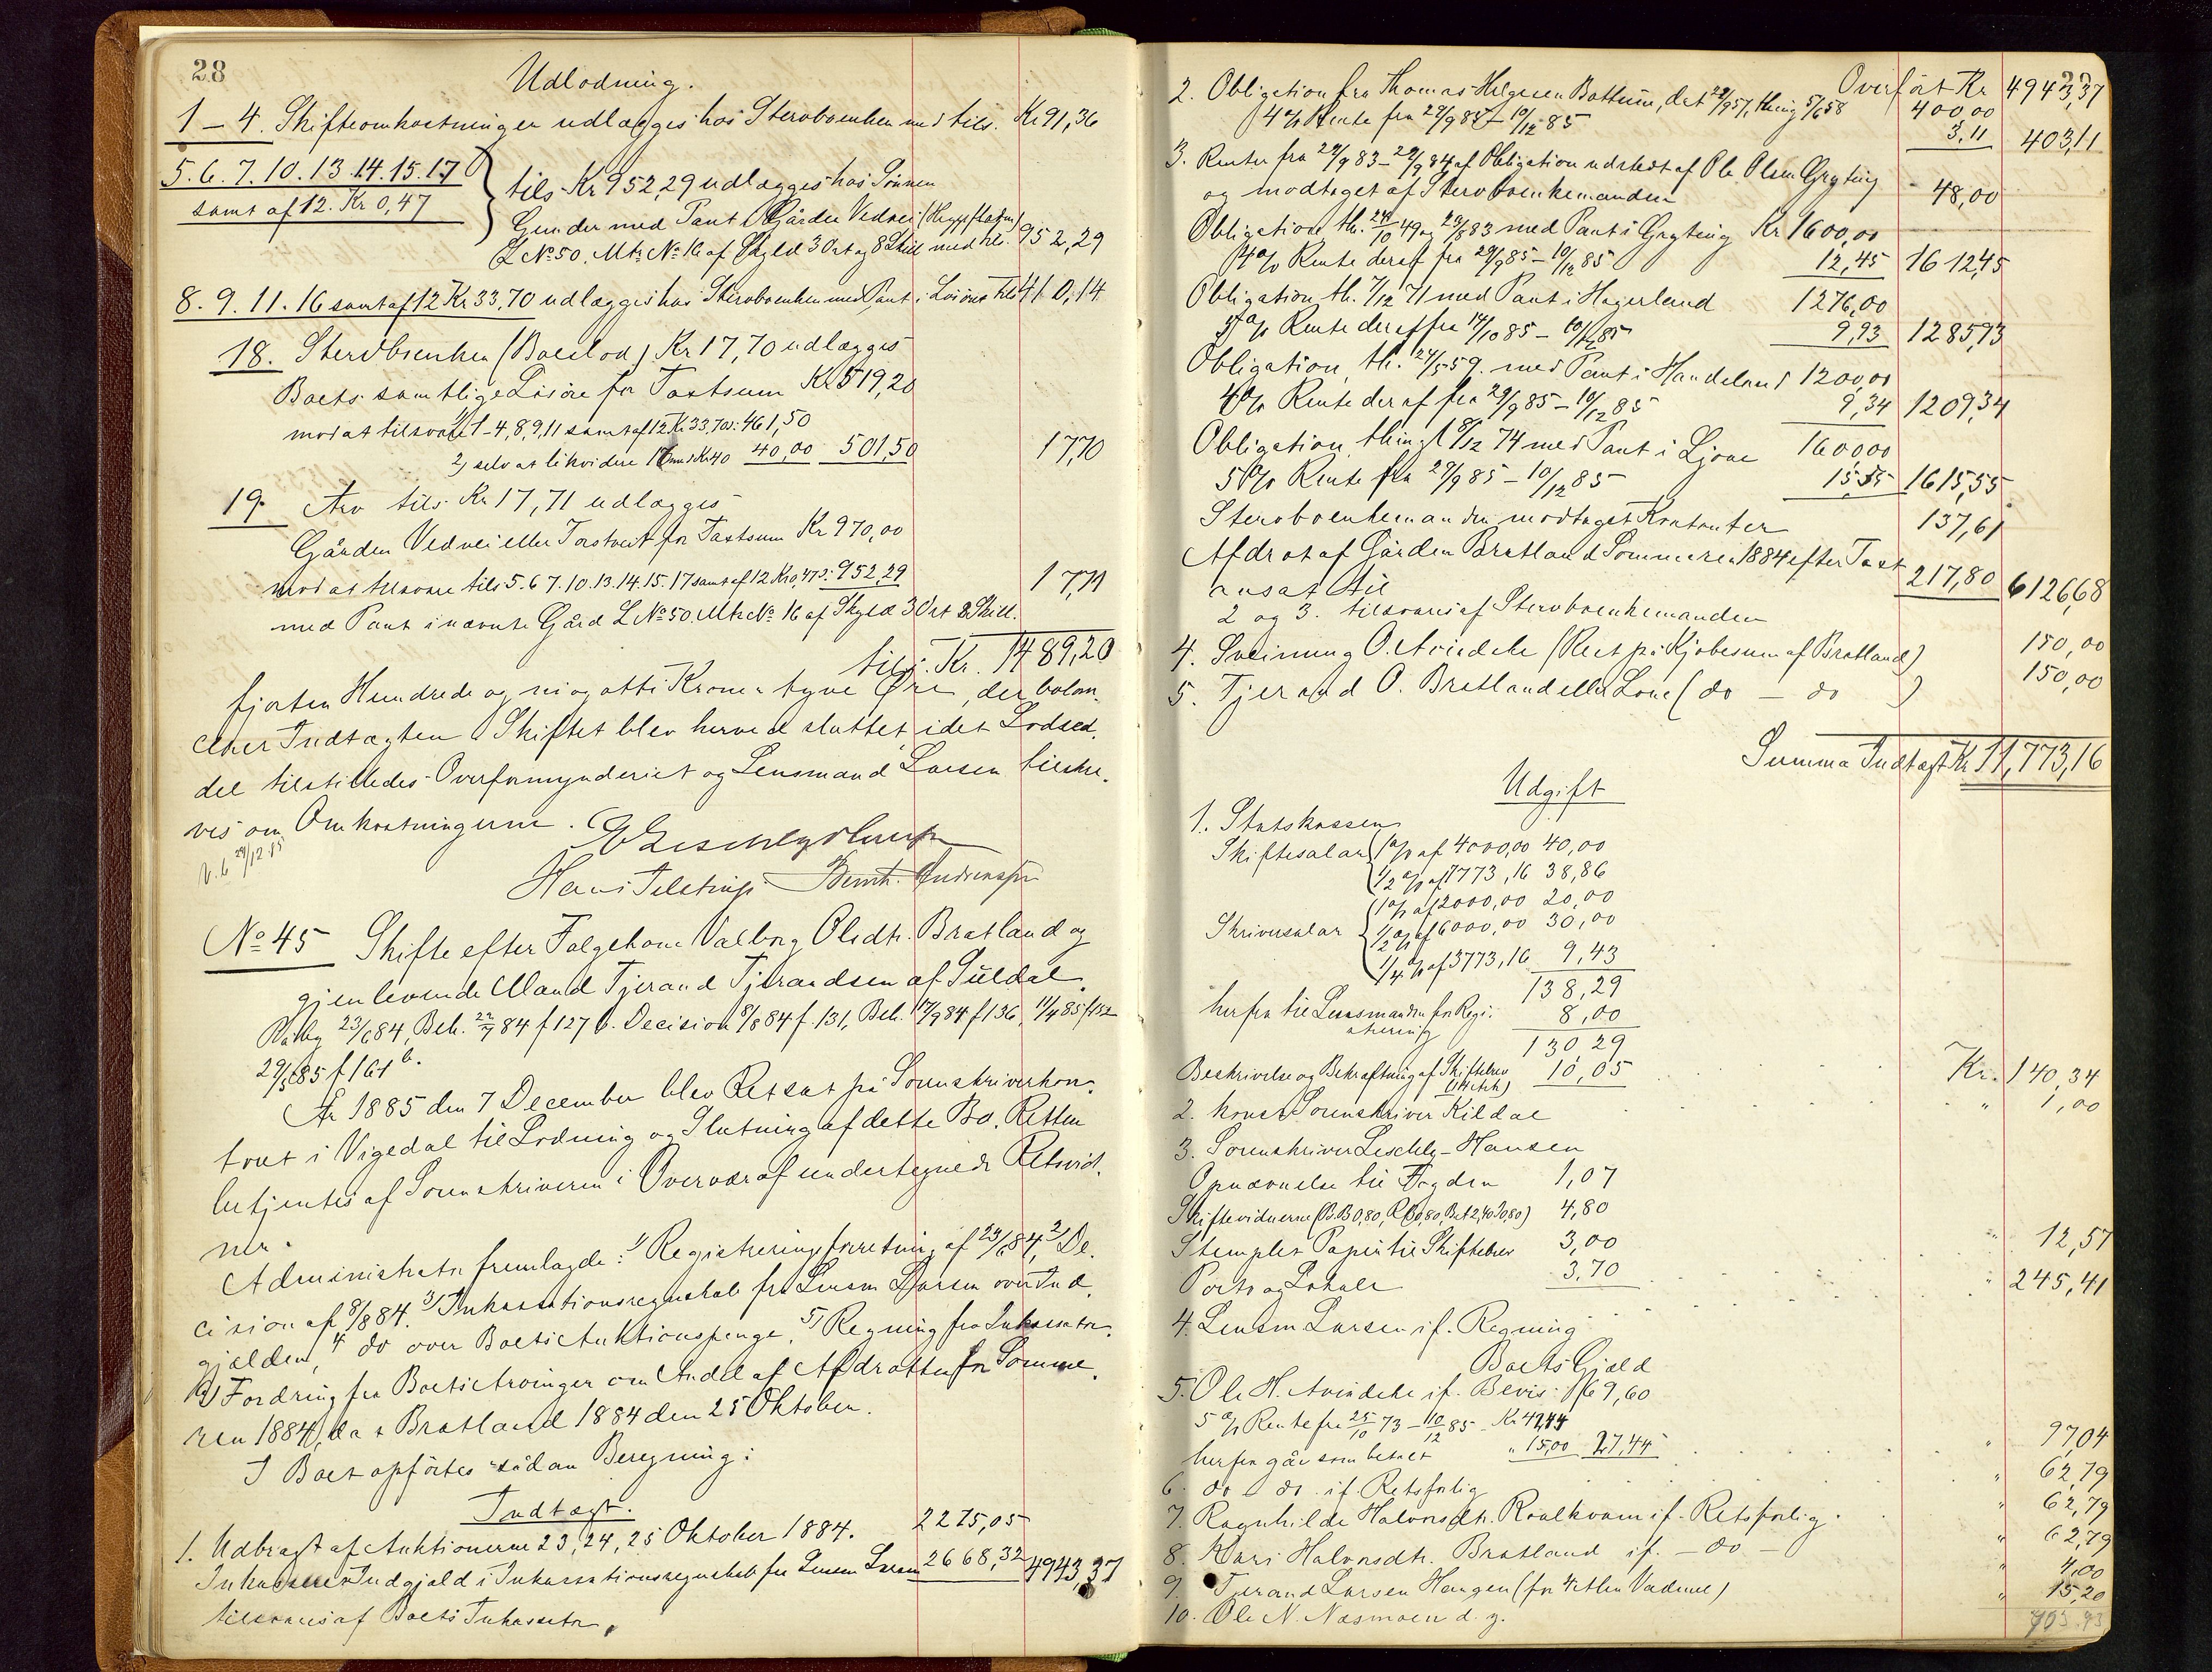 28
Udlodning.
1 – 4. Skifteomkostninger udlægges hos Stervboenken med tils. Kr 91,36
5. 6. 7. 10. 13. 14. 15. 17
samt af 12. Kr 0,47
tils. Kr 952,29 udlægges hos Sønnen
Gunder med Pant i Gården Vedvei
L No 50. Mtr No 16 af Skyld 3 Ort og 8 Skill med tils. 952,29
8. 9. 11. 16 samt af 12 Kr 33,70 udlægges hos Stervboenken med Pant i Løsøre tils 410,14
18. Stervboenken (Boeslod) Kr 17,70 udlægges
Boets samtlige Løsøre for Taxtsum Kr 519,20
mod at tilsvare 1/ 1-4, 8, 9, 11 samt af 12 Kr 33,70: 461,50
2/ selv at likvidere 16 med Kr 40 40,00 501,50 17,70
19. Arv tils. Kr 17,71 udlægges
Gården Vedvei eller Torstveit for Taxtsum Kr 970,00
mod at tilsvare tils 5. 6 7. 10. 13. 14. 15. 17 samt af 12 Kr 0,47: 952,29 17,71
med Pant i nævnte Gård L No 50. Mtr No 16 af Skyld 3 Ort 8 Skill.
tils. Kr. 1489,20
fjorten Hundrede og ni og otti Kroner tyve Øre, der balan-
cerer Indtægten. Skiftet blev herved sluttet, idet Lodsed-
del tilstilledes Overformynderiet og Lensmand Larsen tilskre-
ves om Omkostningerne.
29/12 85
No 45 Skifte efter Folgekone Valborg Olsdtr. Bratland og
gjenlevende Mand Tjerand Tjerandsen af Suldal.
23/6 84, Beh. 22/7 84 f 127 b. Decision 8/8 84 f. 131, Beh. 17/9 84 f 136, 11/4 85 f 152
29/5 85 f 161 b.
År 1885 den 7 December blev Ret sat på Sorenskriverkon-
toret i Vigedal til Lodning og Slutning af dette Bo. Retten
betjentes af Sorenskriveren i Overvær af undertegnede Retsvid-
ner.
Administrator fremlagde: 1/ Registreringsforretning af 23/6 84, 2/ De-
cision af 8/8 84. 3/ Inkassationsregnskab fra Lensm Larsen over Ind-
gjælden, 4 do over Boets Auktionspenge. 5/ Regning fra Inkassator.
6/ Fordring fra Boets Arvinger om Andel af Afdrotten for Somme-
ren 1884, dat Bratland 1884 den 25 Oktober.
I Boet opførtes sådan Beregning:
Indtægt.
1. Udbragt af Auktionerne 23, 24, 25 Oktober 1884. 2275,05
Inkasseret Indgjæld i Inkassationsregnskab fra Lensm Larsen 2668,32 4943,37
tilsvares af Boets Inkassator.
Overført Kr 4943,37
2. Obligation fra Thomas Helgesen Bottum, dat 22/9 57, thing 5/6 58 400,00
4 % Rente fra 29/9 85 – 10/12 85 3,11 403,11
3. Renter fra 29/9 83 – 29/9 84 af Obligation udstedt af Ole Olsen Gryting
og modtaget af Stervboenkemanden 48,00
Obligation th. 24/10 49 og 29/8 83 med Pant i Gryting Kr 1600,00
4 % Rente deraf fra 29/9 85 – 10/12 85 12,45 1612,45
Obligation th. 7/12 71 med Pant i Hagerland 1276,00
5 % Rente deraf fra 14/10 85 – 10/12 85 9,93 1285,93
Obligation, th. 24/5 59. med Pant i Handeland 1200,00
4 % Rente deraf fra 29/9 85 – 10/12 85 9,34 1209,34
Obligation, thingl 9/12 74 med Pant i Ljone 1600,00
5 % Rente fra 29/9 85 – 10/12 85 15,55 1615,55
Stervboenkemanden modtaget Kontanter 137,61
Afdrot af Gården Bratland Sommeren 1884 efter Taxt
ansat til 217,80 6126,68
2 og 3. tilsvares af Stervboenkemanden
4. Sveinung O. Avindeke (Rest på Kjøbesum af Bratland) 150,00
5. Tjerand O. Bratland eller Lone (do – do) 150,00
Summa Indtægt Kr 11,773,16
Udgift
1. Statskassen
Skiftesalar 1 % af 4000,00 40,00
1/2 % af 7773,16 38,86
Skriversalar 1 % af 2000,00 20,00
1/2 % af 6000,00 30,00
1/4 % af 3773,16 9,43
138,29
herfra til Lensmanden for Regi-
strering 8,00
130 29
Beskrivelse og Bekræftning af Skiftebrev 10,05 Kr. 140,34
2. konst Sorenskriver Kildal " 1,00
3. Sorenskriver Leschly-Hansen
Opnævnelse til Fogden 1,07
Skiftevidnerne 4,80
Stemplet Papir til Skiftebrev 3,00
Porto og Lokale 3,70 " 12,57
4. Lensm Larsen if. Regning " 245,41
Boets Gjæld
5. Ole H. Avindeke if. Bevis 69,60
5 % Rente fra 25/10 73 – 10/12 85 Kr 42,44
herfra går som betalt " 15,00 27,44 " 97 04
6. do do if. Retsforlig " 62,79
7. Ragnhilde Halvorsdtr. Roalkvam if. Retsforlig. " 62,79
8. Kari Halvorsdtr. Bratland if. – do – " 62,79
9. Tjerand Larsen Haugen " 4,00
10. Ole N. Næsmoen d. y. " 15,20